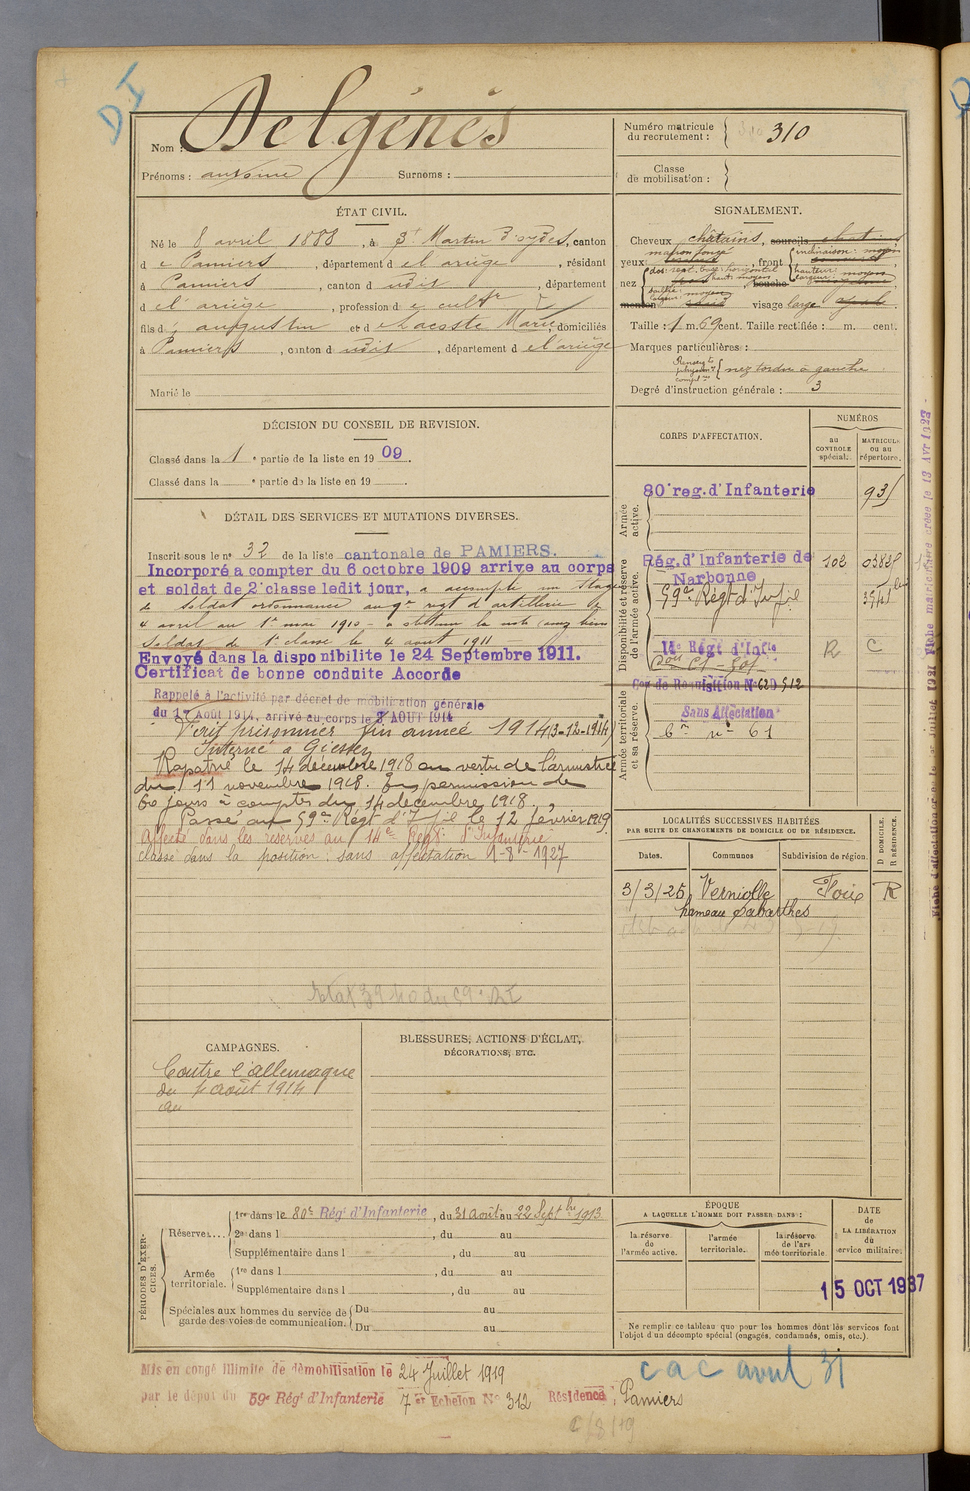 DI
Nom : Delgénès
Prénoms : antoine Surnoms :
Numéro matricule du recrutement : 310
Classe de mobilisation :
ÉTAT CIVIL.
Né le 8 avril 1888, à St Martin d'oydes, canton
de Pamiers, département de l'ariège, résidant
à Pamiers, canton d udit, département
d e l'ariège, profession de cultr
fils d' augustin et de Lacoste Marie, domiciliés
à Pamiers, canton d udit, département de l'ariège
Marié le
SIGNALEMENT.
Cheveux châtains, sourcils chatains
yeux: marron foncé, front inclinaison: moyen
hauteur: moyen
largeur: moyen
nez dos: rect. base: horizontal
haut: moyen bouche
saillie:
largeur: moyen
menton visage large
Taille : 1 m. 69 cent. Taille rectifiée : m. cent.
Marques particulières :
Renseigts physioms compl.res nez tordu à gauche
Degré d'instruction générale : 3
DÉCISION DU CONSEIL DE REVISION.
Classé dans la 1 e partie de la liste en 1909.
Classé dans la e partie de la liste en 19 .
DÉTAIL DES SERVICES ET MUTATIONS DIVERSES.
Inscrit sous le n° 32 de la liste cantonale de PAMIERS.
Incorporé a compter du 6 octobre 1909 arrive au corps
et soldat de 2e classe ledit jour, a accompli un stage
de soldat ordonnance au 9e regt d'artillerie du
4 avril au 1er mai 1910 - a obtenu la note assez bien
Soldat de 1e classe le 4 août 1911
Envoyé dans la disponibilite le 24 Septembre 1911.
Certificat de bonne conduite Accorde
Rappelé à l'activité par décret de mobilisation générale
du 1er Août 1914, arrivé au corps le 3 AOUT 1914
Vérif prisonnier fin année 1914 (13-12-1914)
Interné a Giessen
Rapatrié le 14 décembre 1918 en vertu de l'armistice
du 11 novembre 1918. En permission de
60 jours à compter du 14 décembre 1918.
Passé au 59e Régt d'Infie le 12 février 1919
Affecté dans les réserves au 14e Régt d'Infanterie
Classé dans la position : sans affectation 1-8-1927
Etat 39 40 du 59e RI
CORPS D'AFFECTATION.
NUMÉROS
au CONTROLE spécial.
MATRICULE ou au répertoire.
Armée active.
80e reg. d'Infanterie 931
Disponibilité et réserve de l'armée active.
Rég. d'Infanterie de Narbonne 102 03828
59e Régt d'Infie 3541 bis
14e Régt d'Infie R C
Armée territoriale et sa réserve.
Cor de Requisition N° 620 512
Sans Affectation
6 61
LOCALITÉS SUCCESSIVES HABITÉES
PAR SUITE DE CHANGEMENTS DE DOMICILE OU DE RÉSIDENCE.
D DOMICILE.
R RÉSIDENCE.
Dates. Communes Subdivision de région.
3/3/25 Verniolle Foix R
hameau Sabarthes
CAMPAGNES.
Contre l'allemagne
du 1 août 1914
au
BLESSURES, ACTIONS D'ÉCLAT,
DÉCORATIONS, ETC.
PÉRIODES D'EXERCICES.
Réserve... 1re dans le 80e Régt d'Infanterie, du 31 août au 22 Septbre 1913
2e dans l , du au
Supplémentaire dans l , du au
Armée territoriale. 1re dans l , du au
Supplémentaire dans l , du au
Spéciales aux hommes du service de garde des voies de communication. Du au
Du au
ÉPOQUE
A LAQUELLE L'HOMME DOIT PASSER DANS :
la réserve de l'armée active.
l'armée territoriale.
la réserve de l'armée territoriale
DATE de LA LIBÉRATION du service militaire.
15 OCT 1937
Ne remplir ce tableau que pour les hommes dont les services font
l'objet d'un décompte spécial (engagés, condamnés, omis, etc.).
Mis en congé illimité de démobilisation le 24 Juillet 1919
par le dépôt du 59e Régt d'Infanterie 7 er Echelon N° 312 Résidence : Pamiers
cac avril 31